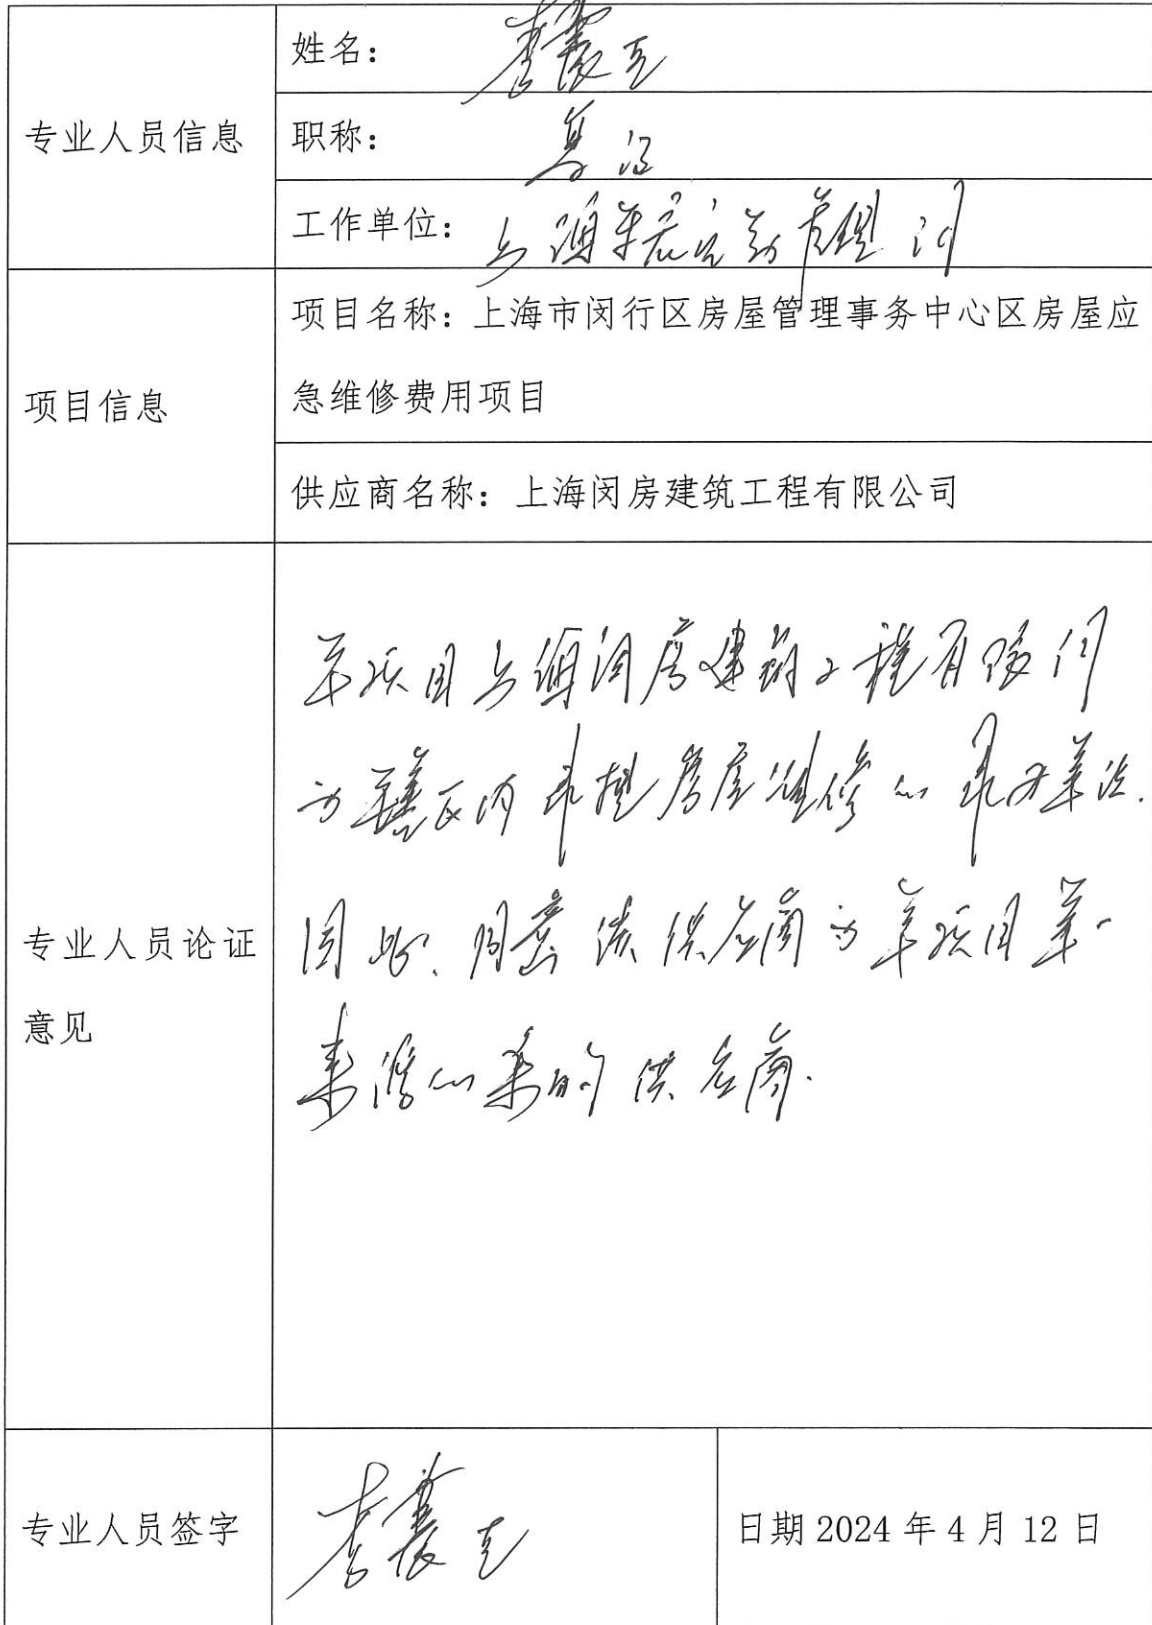 姓名：李
专业人员信息
职称：高工
工作单位：上海 管理
项目信息
项目名称：上海市闵行区房屋管理事务中心区房屋应
急维修费用项目
供应商名称：上海闵房建筑工程有限公司
专业人员论证
意见
本项目上海闵房建筑工程有限公司
为辖区内承担房屋维修的 单位.
因此，同意该供应商为本项目单一
来源采购供应商.
专业人员签字
李
日期 2024 年 4 月 12 日